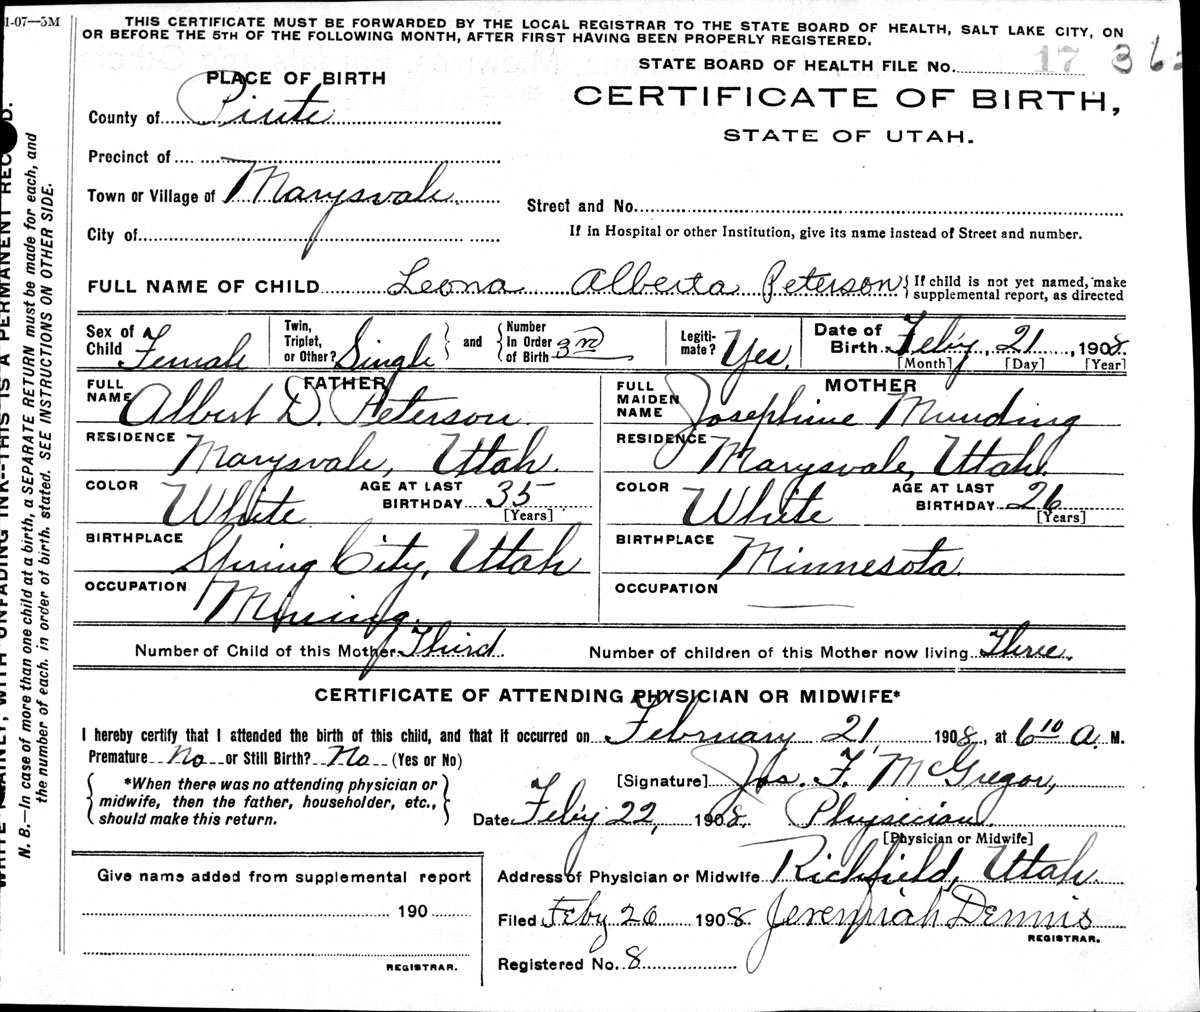 1-07—5M
THIS CERTIFICATE MUST BE FORWARDED BY THE LOCAL REGISTRAR TO THE STATE BOARD OF HEALTH, SALT LAKE CITY, ON
OR BEFORE THE 5TH OF THE FOLLOWING MONTH, AFTER FIRST HAVING BEEN PROPERLY REGISTERED.
STATE BOARD OF HEALTH FILE No. 17 36
PLACE OF BIRTH
CERTIFICATE OF BIRTH,
STATE OF UTAH.
County of Piute
Precinct of
Town or Village of Marysvale
City of
Street and No.
If in Hospital or other Institution, give its name instead of Street and number.
FULL NAME OF CHILD Leona Alberta Peterson { If child is not yet named, make supplemental report, as directed
Sex of Child Female
Twin, Triplet, or Other? Single
and
Number in Order of Birth 3rd
Legitimate? Yes.
Date of Birth Feby, 21, 1908.
[Month] [Day] [Year]
FATHER
FULL NAME Albert D. Peterson
RESIDENCE Marysvale, Utah.
COLOR White
AGE AT LAST BIRTHDAY 35
[Years]
BIRTHPLACE Spring City, Utah
OCCUPATION Mining.
MOTHER
FULL MAIDEN NAME Josephine Munding
RESIDENCE Marysvale, Utah.
COLOR White
AGE AT LAST BIRTHDAY 26
[Years]
BIRTHPLACE Minnesota.
OCCUPATION
Number of Child of this Mother Third.
Number of children of this Mother now living Three.
CERTIFICATE OF ATTENDING PHYSICIAN OR MIDWIFE*
I hereby certify that I attended the birth of this child, and that it occurred on February 21, 1908, at 6 10 A. M.
Premature No or Still Birth? No (Yes or No)
*When there was no attending physician or
midwife, then the father, householder, etc.,
should make this return.
[Signature] Jos. F. McGregor,
Date Feby 22, 1908. Physician.
[Physician or Midwife]
Address of Physician or Midwife Richfield, Utah.
Filed Feby 26 1908. Jeremiah Dennis
REGISTRAR.
Registered No. 8
Give name added from supplemental report
190
REGISTRAR.
N. B.—In case of more than one child at a birth, a SEPARATE RETURN must be made for each, and
the number of each, in order of birth, stated. SEE INSTRUCTIONS ON OTHER SIDE.
WITH UNFADING INK--THIS IS A PERMANENT